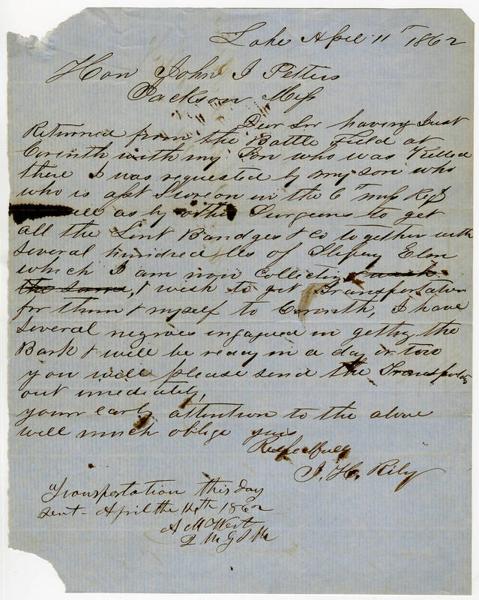 Lake April 11th 1862
Hon John J Pettus
Jackson Miss
Dear Sir having Just
Returned from the Battle Field at
Corinth with my Son who was Killed
there I was requested by my son who
who is asst Surgeon in the 6th miss Regt
well as by other Surgeons to get
all the Lint Bandges & Co together with
Several hundred lbs of Slipry Elm
which I am now Collecting
the same, & wish to get Transportation
for them & myself to Corinth, I have
Several negroes ingaged in getting the
Bark & will be ready in a day or two
you will please send the Transportation
out imediatly,
your early attention to the above
will much oblige yours
Respectfully
J. H. Rily
Transportation this day
sent - April the 14th 1862
A M West
Q M G S M